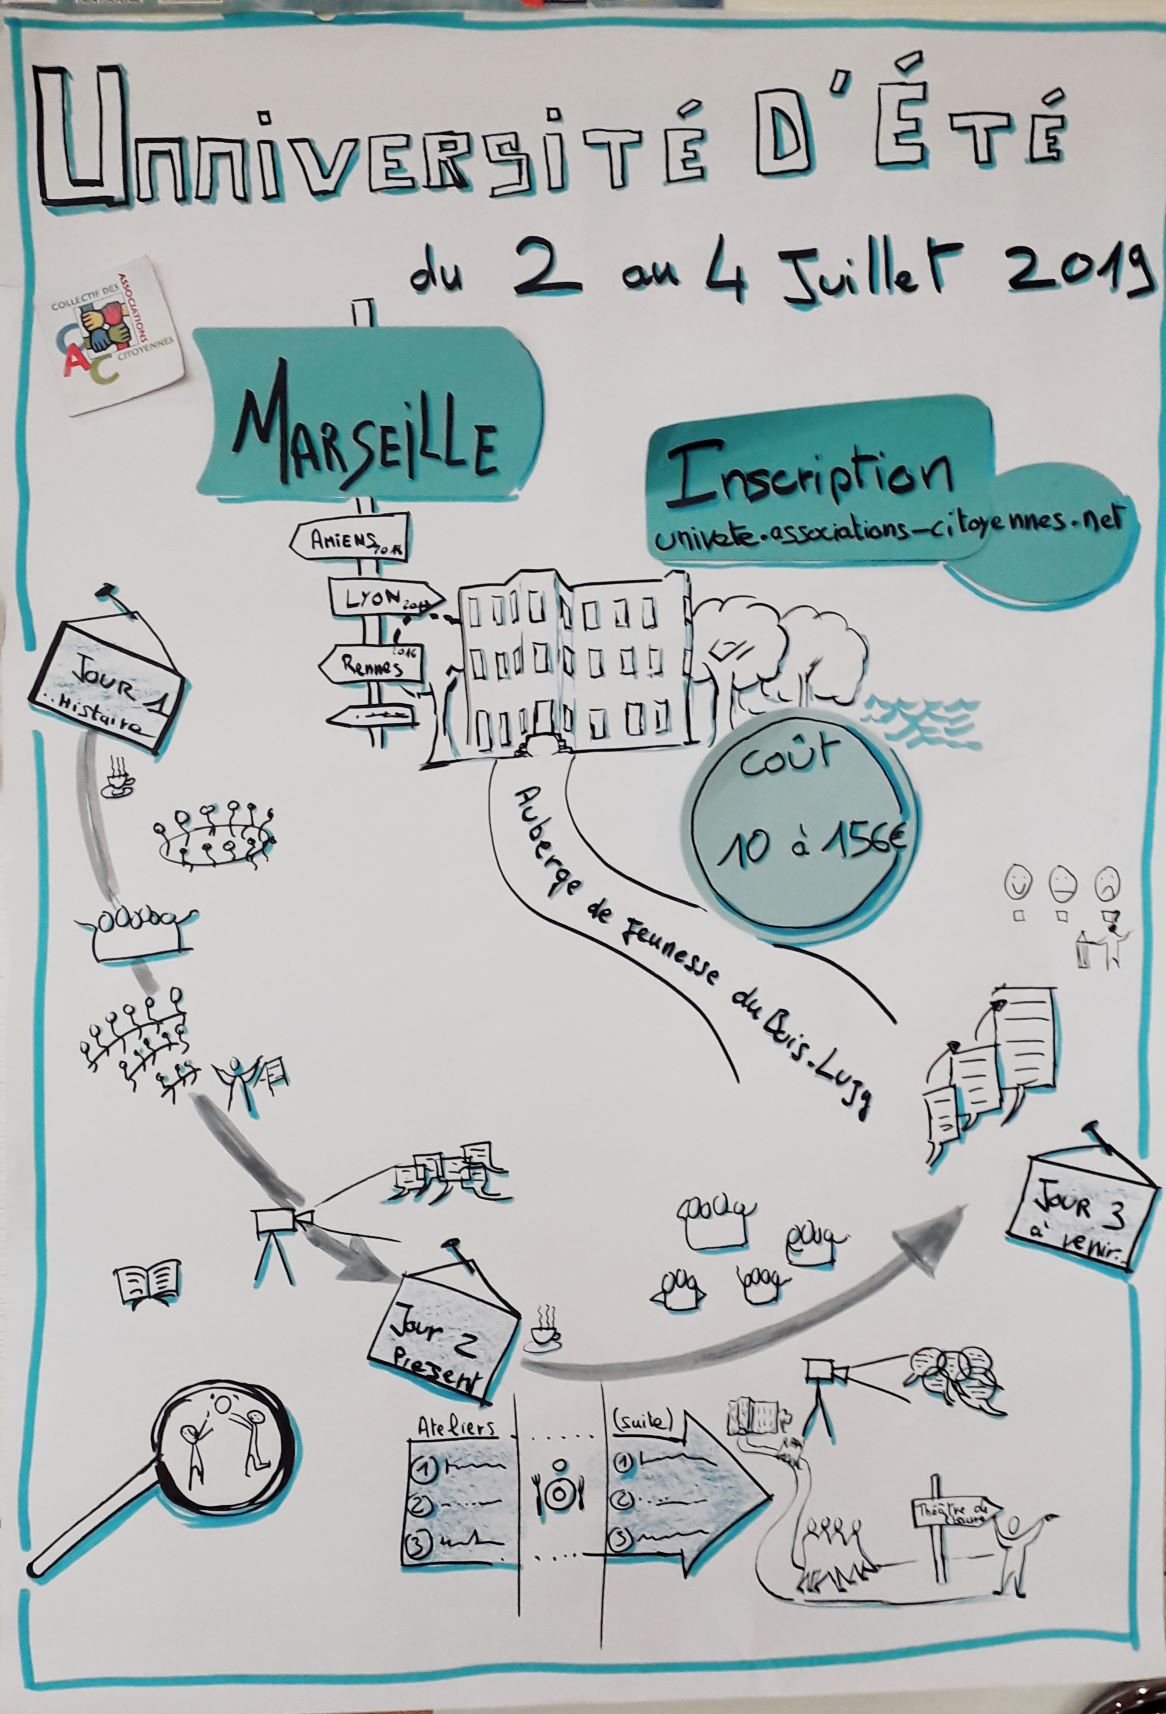 Unniversité D'Été
du 2 au 4 Juillet 2019
COLLECTIF DES
ASSOCIATIONS
CITOYENNES
CAC
MARSEILLE
Inscription
univete.associations-citoyennes.net
AMIENS
LYON
Rennes 2016
JOUR 1
..Histoire
coût
10 à 156€
Auberge de Jeunesse du Bois-Luzy
JOUR 3
à venir..
Jour 2
Présent
Ateliers
(suite)
1
1
2
2
3
3
Théâtre de